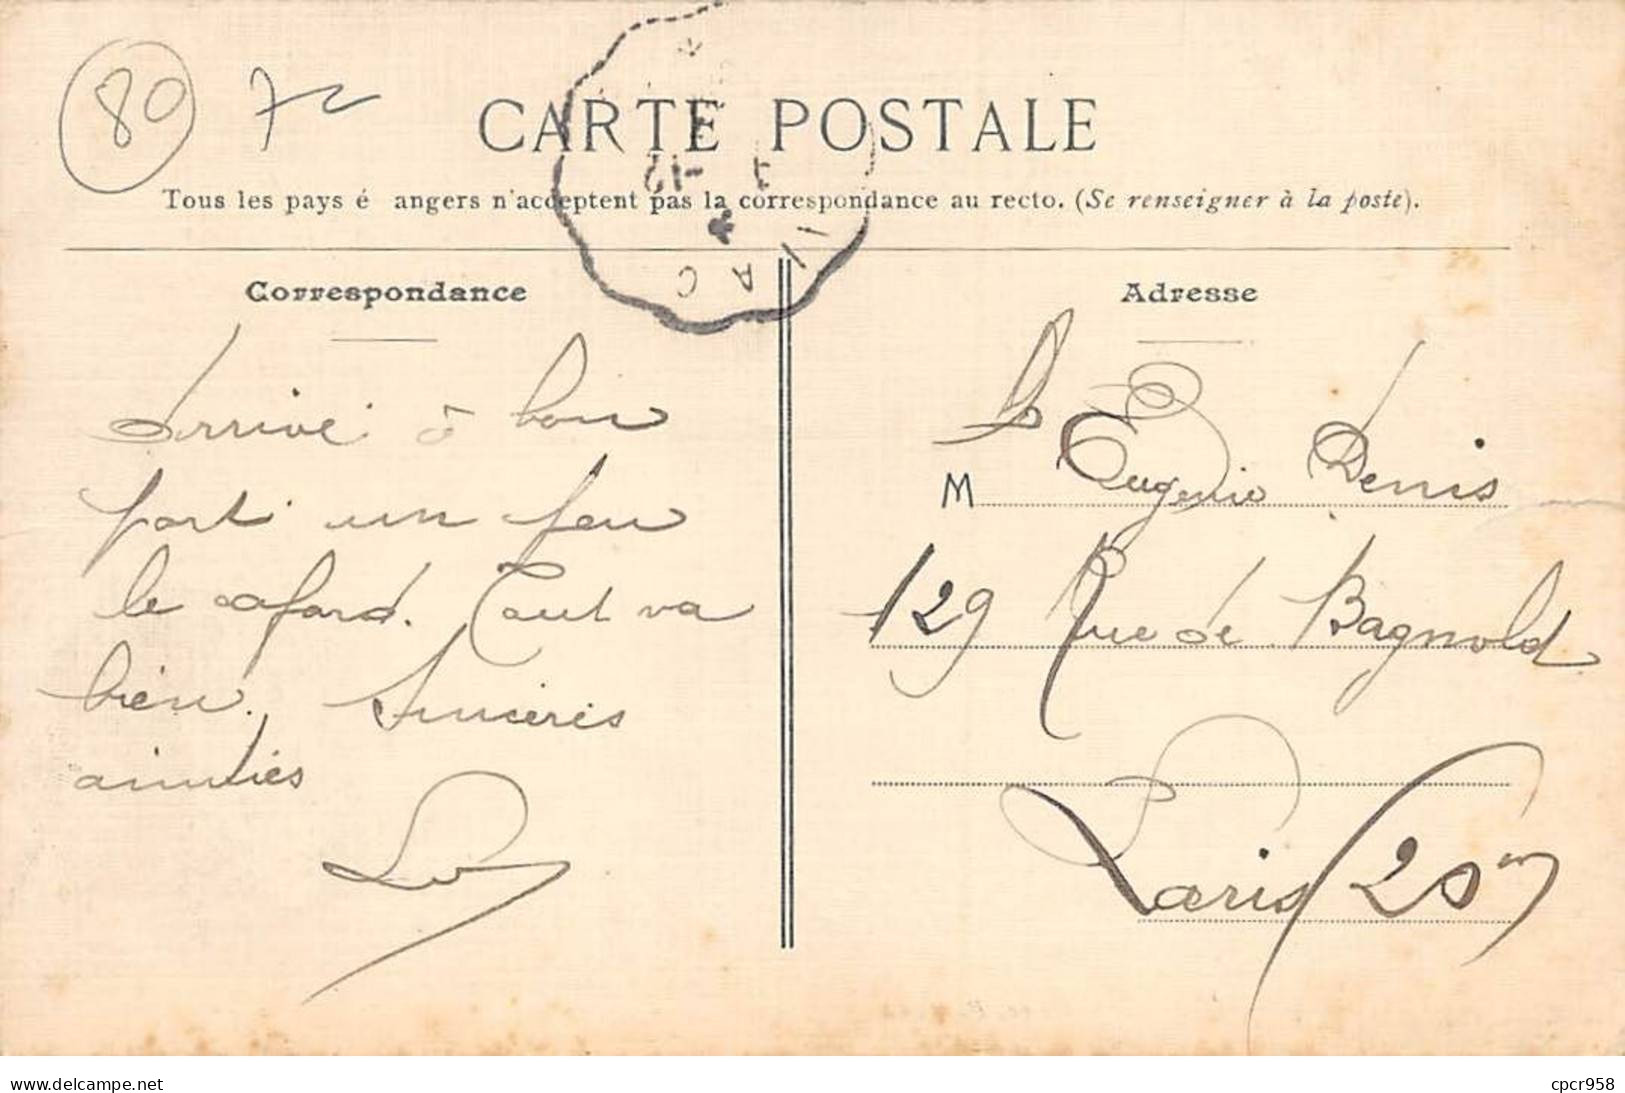 80 72
CARTE POSTALE
Tous les pays é angers n'acceptent pas la correspondance au recto. (Se renseigner à la poste).
Correspondance
Arrivé à bon
port un peu
le cafard. Tout va
bien. Sincères
amitiés
Adresse
M Eugenie Denis
129 Rue de Bagnold
Paris (20m)
cpcr958